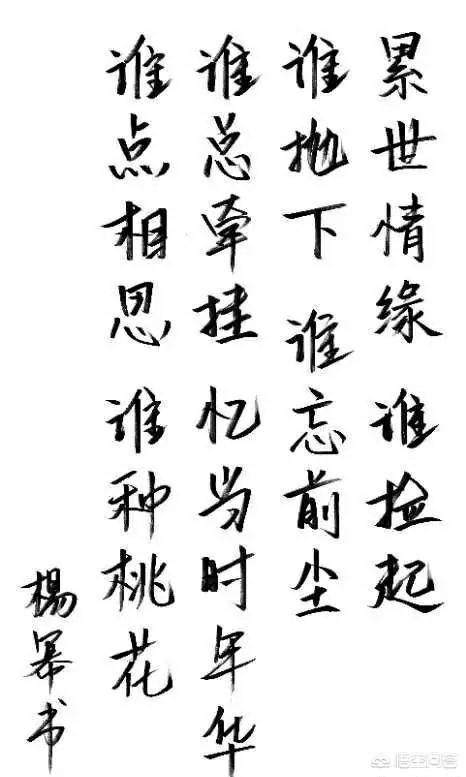 累世情缘 谁捡起
谁抛下 谁忘前尘
谁总牵挂 忆当时年华
谁点相思 谁种桃花
楊幂书
悟空问答